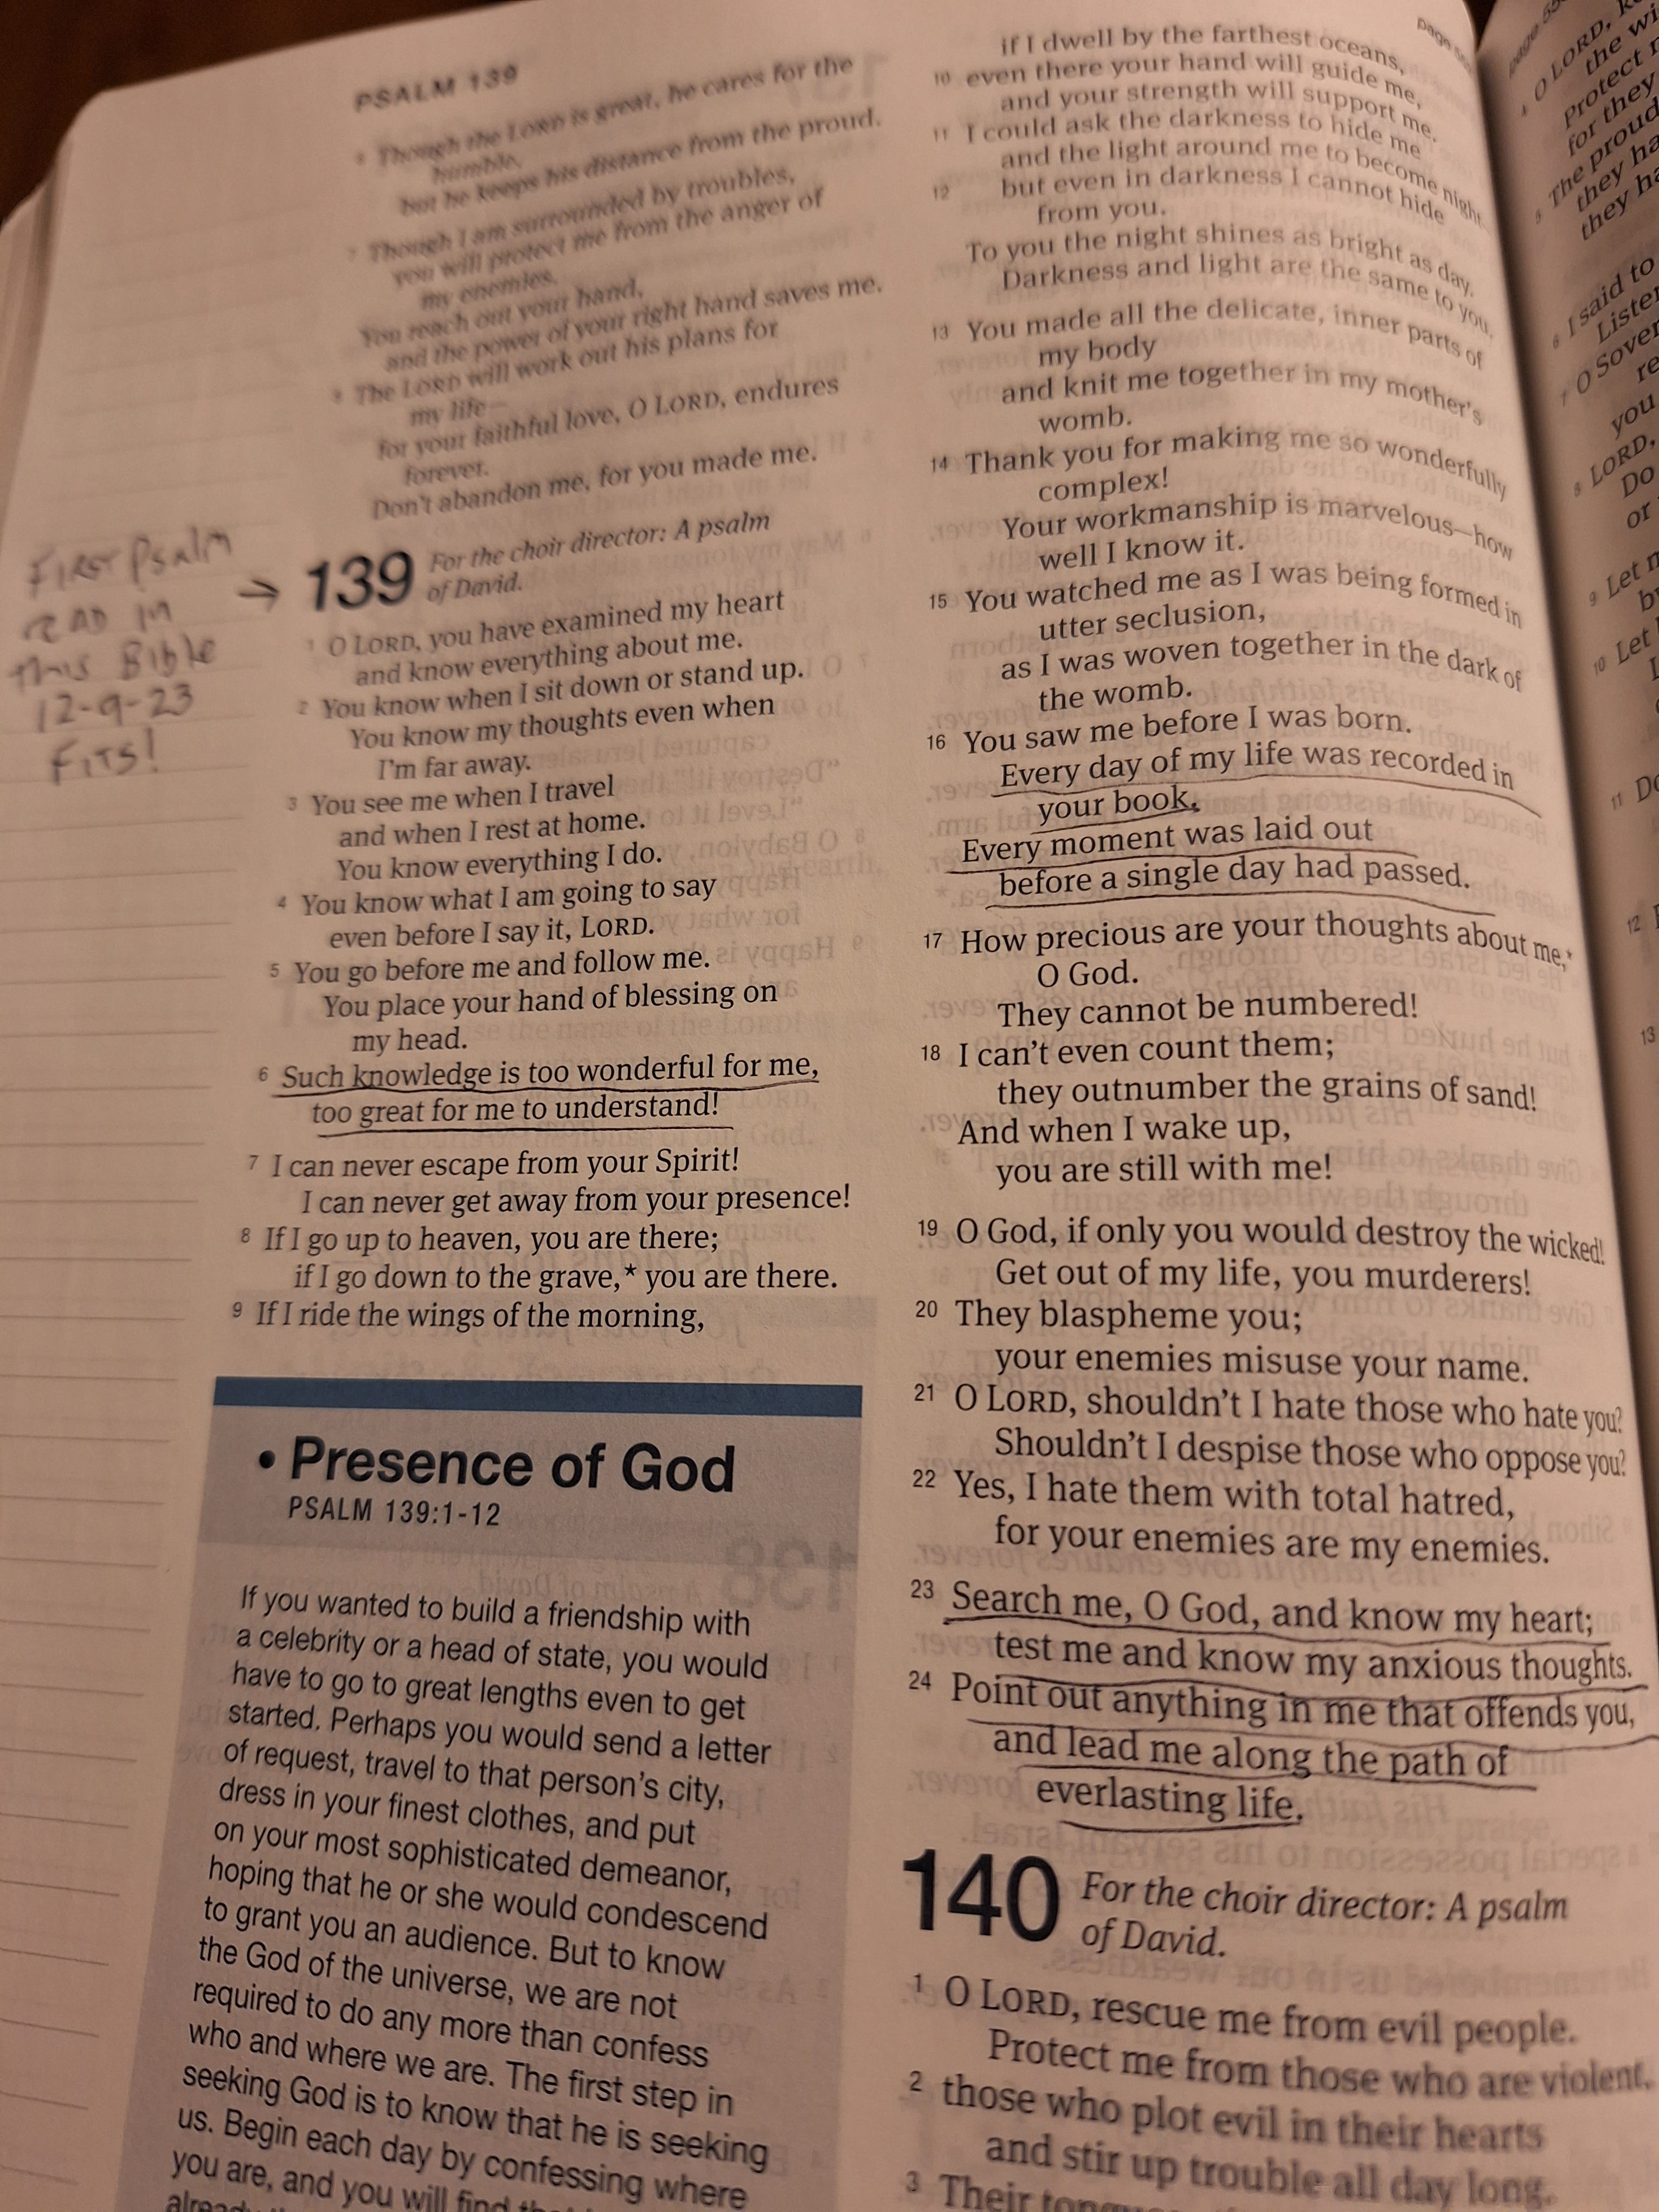 PSALM 139
6 Though the LORD is great, he cares for the
humble,
but he keeps his distance from the proud.
7 Though I am surrounded by troubles,
you will protect me from the anger of
my enemies.
You reach out your hand,
and the power of your right hand saves me.
8 The LORD will work out his plans for
my life—
for your faithful love, O LORD, endures
forever.
Don't abandon me, for you made me.
First Psalm
read in
this Bible
12-9-23
Fits!
→ 139 For the choir director: A psalm
of David.
1 O LORD, you have examined my heart
and know everything about me.
2 You know when I sit down or stand up.
You know my thoughts even when
I'm far away.
3 You see me when I travel
and when I rest at home.
You know everything I do.
4 You know what I am going to say
even before I say it, LORD.
5 You go before me and follow me.
You place your hand of blessing on
my head.
6 Such knowledge is too wonderful for me,
too great for me to understand!
7 I can never escape from your Spirit!
I can never get away from your presence!
8 If I go up to heaven, you are there;
if I go down to the grave,* you are there.
9 If I ride the wings of the morning,
• Presence of God
PSALM 139:1-12
If you wanted to build a friendship with
a celebrity or a head of state, you would
have to go to great lengths even to get
started. Perhaps you would send a letter
of request, travel to that person's city,
dress in your finest clothes, and put
on your most sophisticated demeanor,
hoping that he or she would condescend
to grant you an audience. But to know
the God of the universe, we are not
required to do any more than confess
who and where we are. The first step in
seeking God is to know that he is seeking
us. Begin each day by confessing where
you are, and you will find
if I dwell by the farthest oceans,
10 even there your hand will guide me,
and your strength will support me.
11 I could ask the darkness to hide me
and the light around me to become night
12 but even in darkness I cannot hide
from you.
To you the night shines as bright as day.
Darkness and light are the same to you.
13 You made all the delicate, inner parts of
my body
and knit me together in my mother's
womb.
14 Thank you for making me so wonderfully
complex!
Your workmanship is marvelous—how
well I know it.
15 You watched me as I was being formed in
utter seclusion,
as I was woven together in the dark of
the womb.
16 You saw me before I was born.
Every day of my life was recorded in
your book.
Every moment was laid out
before a single day had passed.
17 How precious are your thoughts about me,*
O God.
They cannot be numbered!
18 I can't even count them;
they outnumber the grains of sand!
And when I wake up,
you are still with me!
19 O God, if only you would destroy the wicked!
Get out of my life, you murderers!
20 They blaspheme you;
your enemies misuse your name.
21 O LORD, shouldn't I hate those who hate you?
Shouldn't I despise those who oppose you?
22 Yes, I hate them with total hatred,
for your enemies are my enemies.
23 Search me, O God, and know my heart;
test me and know my anxious thoughts.
24 Point out anything in me that offends you,
and lead me along the path of
everlasting life.
140 For the choir director: A psalm
of David.
1 O LORD, rescue me from evil people.
Protect me from those who are violent,
2 those who plot evil in their hearts
and stir up trouble all day long.
3 Their
4 O LORD,
the
Protect
for they
5 The proud
they
they
6 I said to
7 O
you
8 LORD,
Do
or
9 Let
10 Let
11
12
13